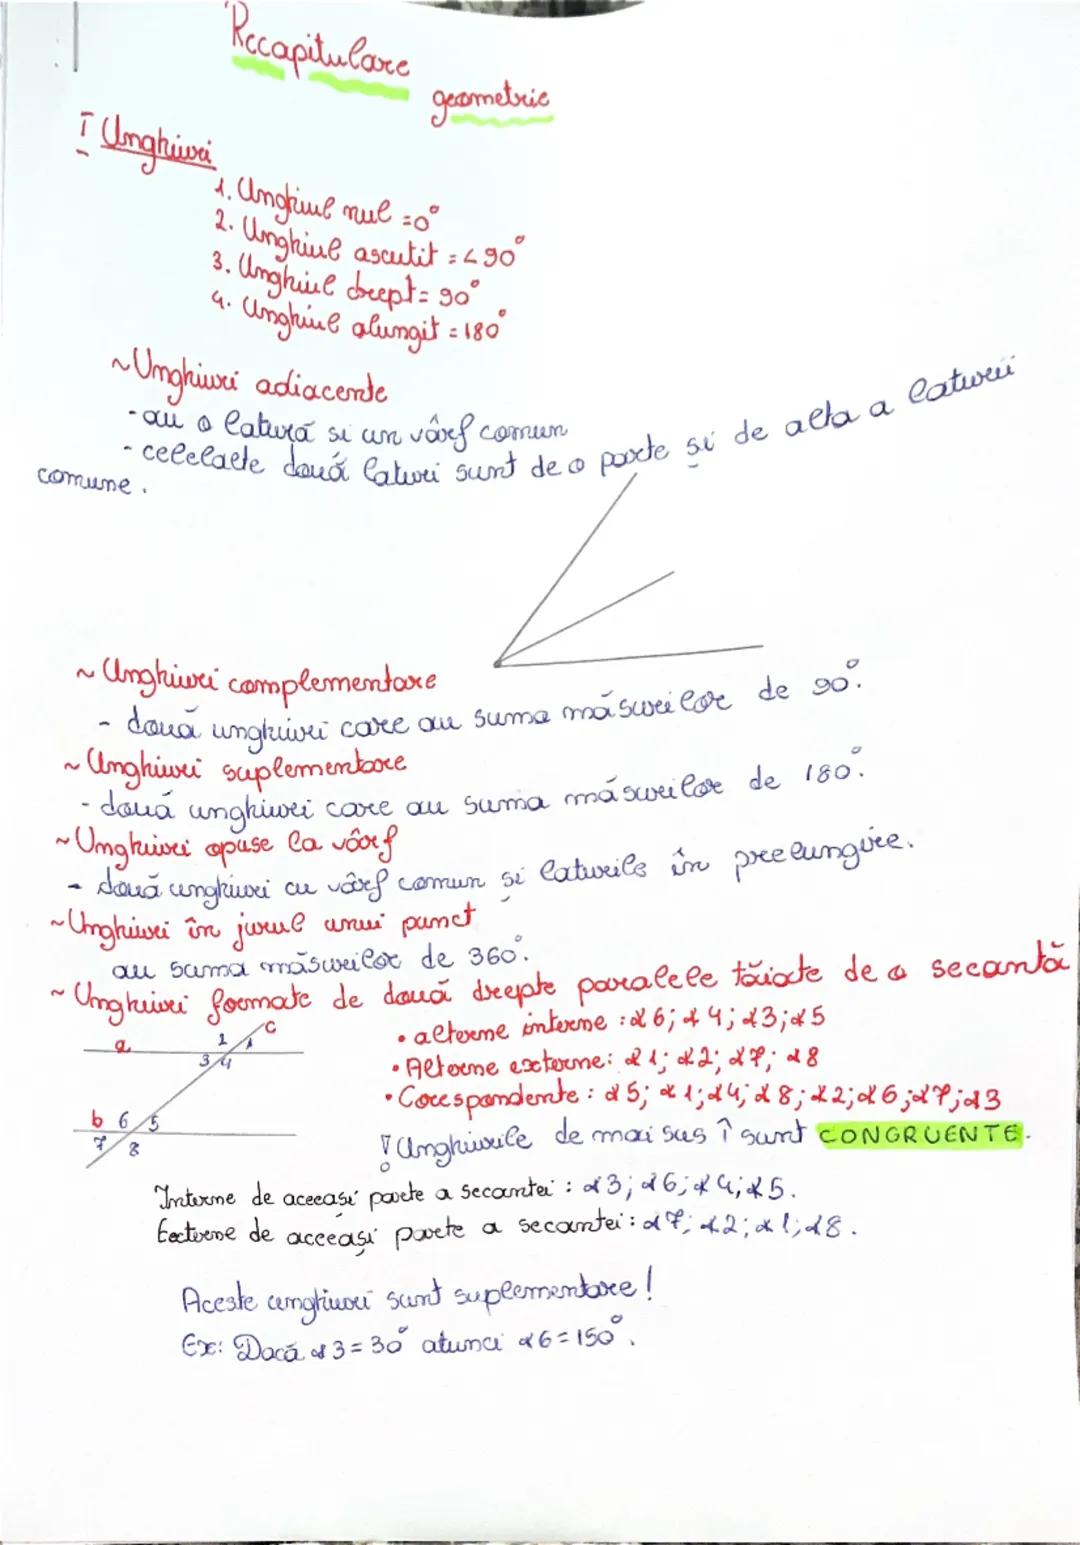 Recapitulare
geometrie
I Unghiuri
1. Unghiul nul =0°
2. Unghiul ascutit = <90°
3. Unghiul drept= 90°
4. Unghiul alungit =180°
~Unghiuri adiacente
- au o latură si un vârf comun
- celelalte două laturi sunt de o parte și de alta a laturii
comune.
~ Unghiuri complementare
- două unghiuri care au suma măsurilor de 90°.
~ Unghiuri suplementare
- două unghiuri care au suma măsurilor de 180°.
~Unghiuri opuse la vârf
- două unghiuri cu vârf comun și laturile în prelungire.
~Unghiuri în jurul unui punct
au suma măsurilor de 360°.
~ Unghiuri formate de două drepte paralele tăiate de o secantă
• alterne interne : ∡6; ∡4; ∡3; ∡5
• Alterne externe: ∡1; ∡2; ∡7; ∡8
• Corespondente : ∡5; ∡1; ∡4; ∡8; ∡2; ∡6; ∡7; ∡3
! Unghiurile de mai sus î sunt CONGRUENTE.
a 2 1 c
3 4
b 6 5
7 8
Interne de aceeași parte a secantei : ∡3; ∡6; ∡4; ∡5.
Externe de aceeași parte a secantei: ∡7; ∡2; ∡1; ∡8.
Aceste unghiuri sunt suplementare!
Ex: Dacă ∡3=30° atunci ∡6=150°.